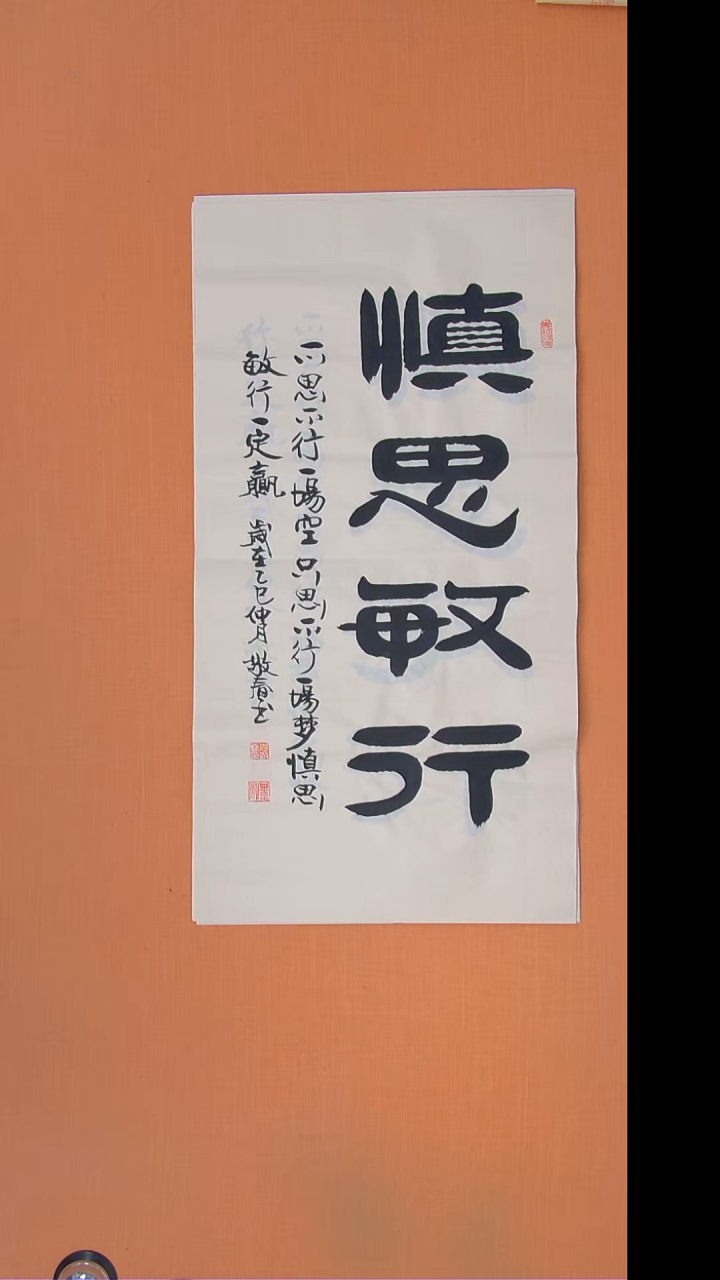 慎思敏行
不思不行一場空只思不行一場梦慎思
敏行一定贏
歲在乙巳仲月敬春书